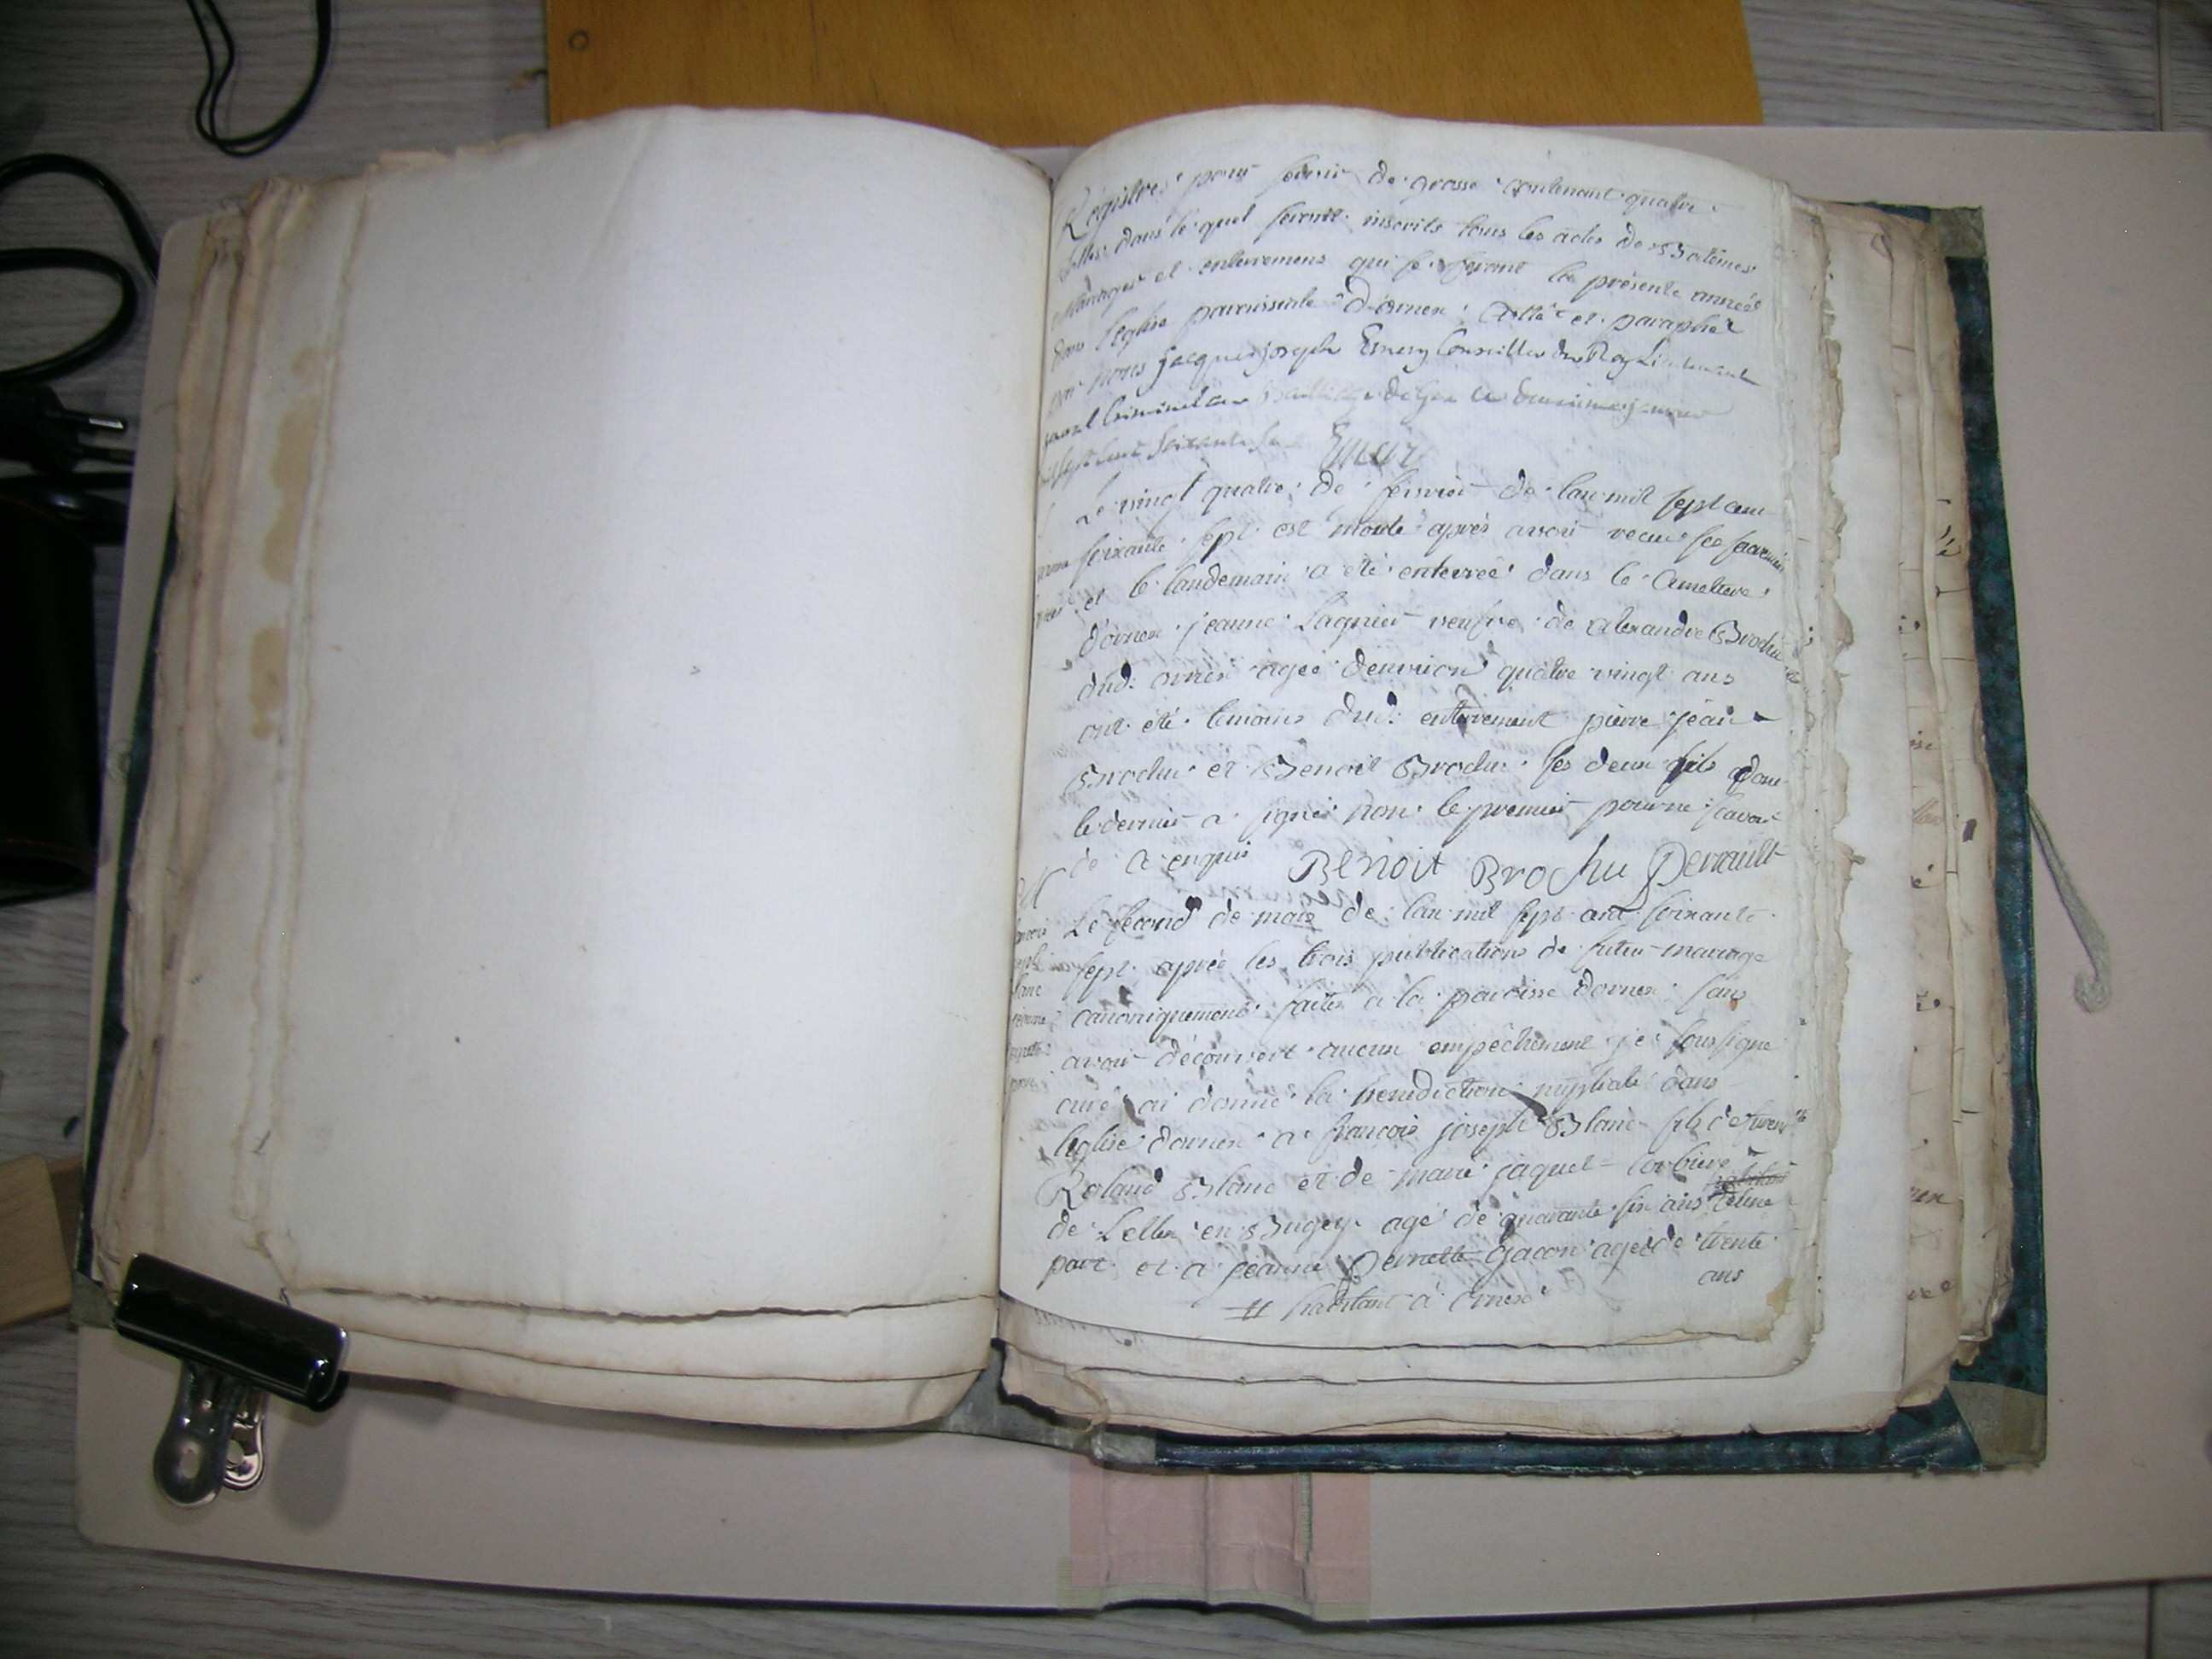 Registre pour servir de grosse contenant quatre
dans le quel seront inscrits tous les actes de Batêmes
Mariages et enterremens qui se feront la présente année
dans l'eglise parroissiale d'ornex Cotté et paraphé
par nous Jacques joseph Emery Conseiller du Roy Lieutenant
Criminel au Bailliage de Gex ce deuxième janvier
sept cent soixante sept Emery
Le vingt quatre de février de lan mil sept cent
soixante sept est morte après avoir recue ses
et le landemain a été enterreé dans le Cimetiere
dornex jeanne Lagnier veufve de alexandre Brochu
dud. ornex ageé denviron quatre vingt ans
ont été temoins dud: enterrement pierre jean
Brochu et Benoit Brochu ses deux fils dont
le dernier a signé non le premier pour ne scavoir
de ce enquis Benoit Brochu Perrault
M
françois
joseph
blanc
jeanne
pernette
gacon
Le second de mars de lan mil sept cent soixante
sept après les trois publications de futur mariage
canoniquement faites a la paroisse dornex sans
avoir découvert aucun empêchement je soussigné
curé ai donné la benediction nuptiale dans
leglise dornex a françois joseph Blanc fils de
Roland Blanc et de marie jaquet
de en Bugey agé de quarante six ans d'une
part et a jeanne Pernette Gacon ageé de trente
ans
# habitant à ornex